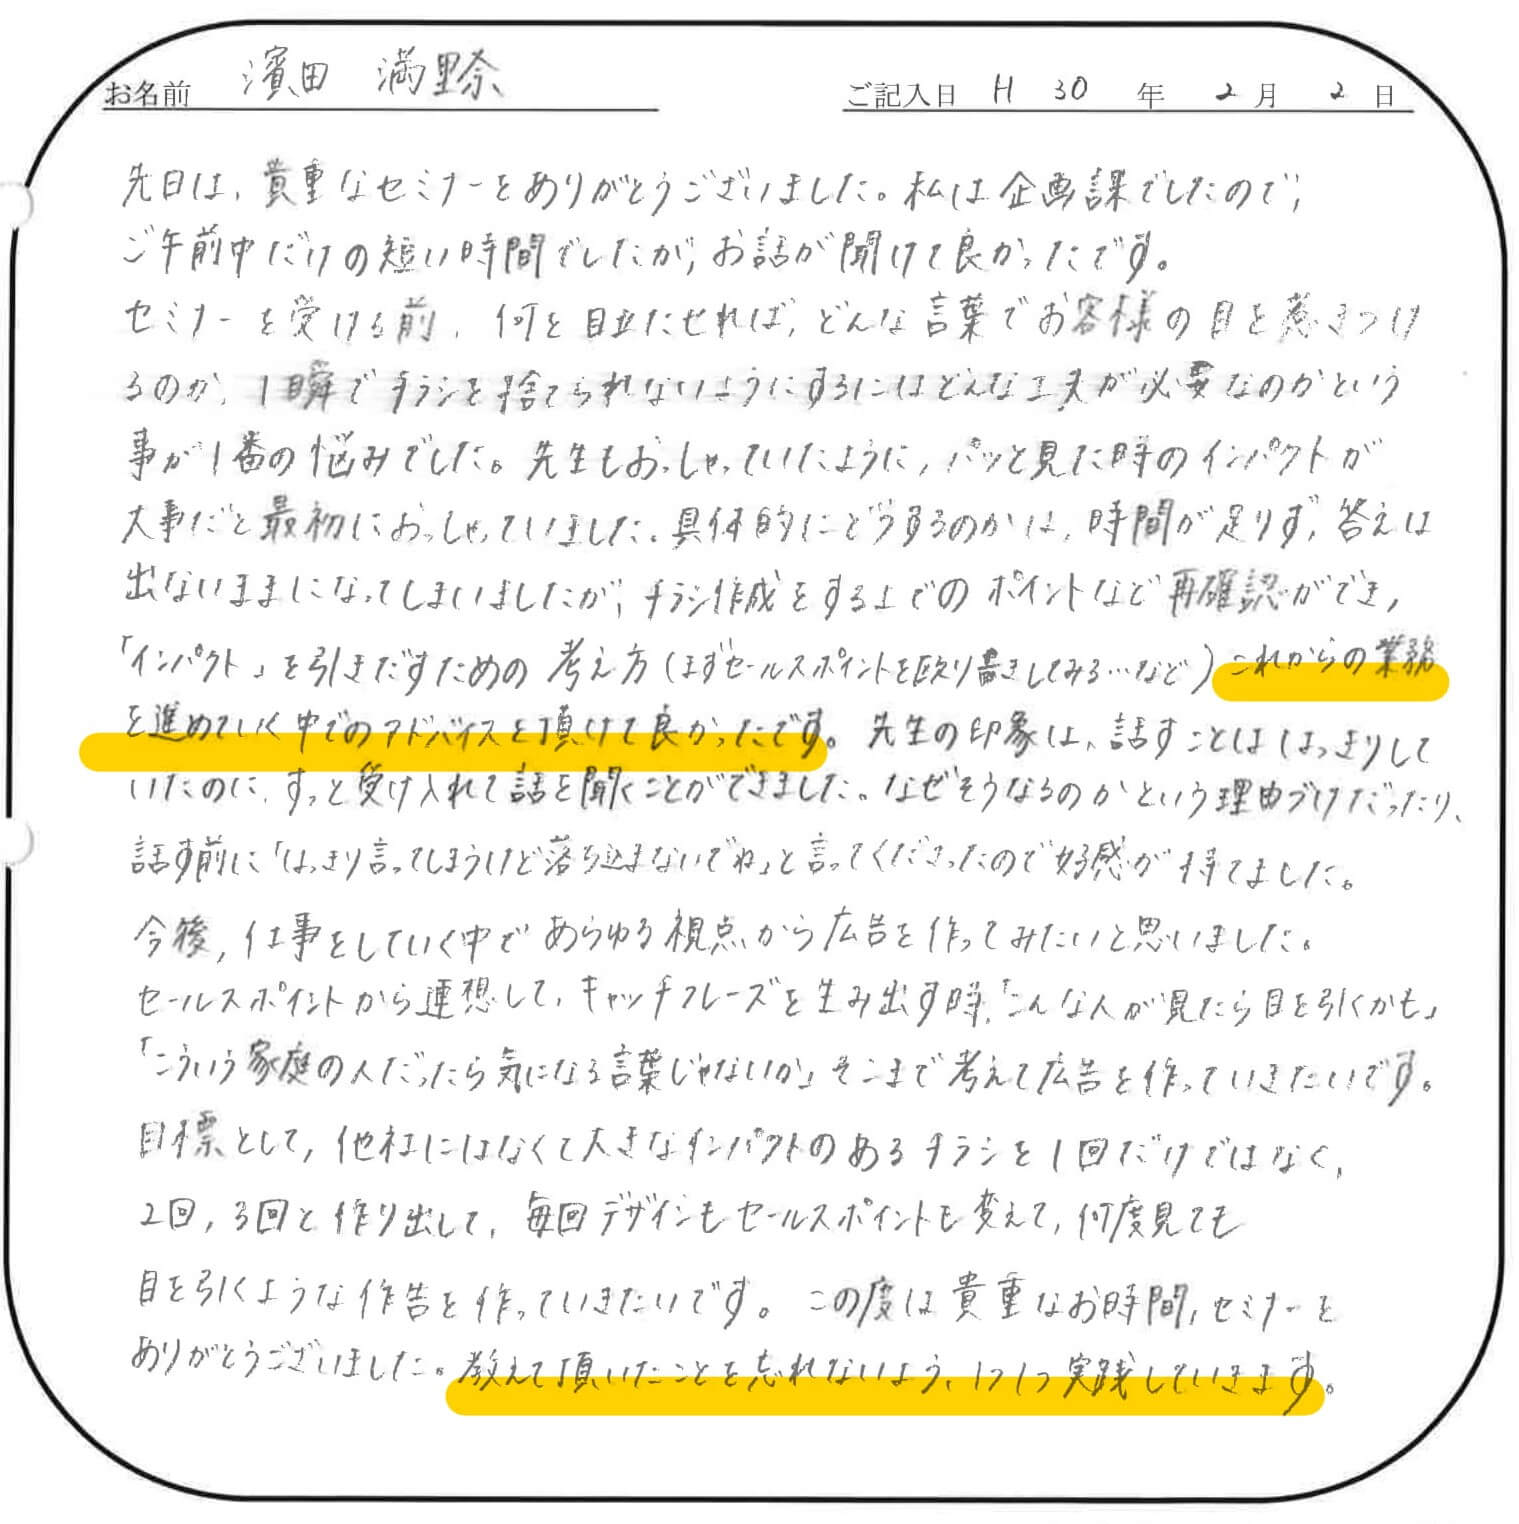 お名前 濱田 満里奈 ご記入日 H 30 年 2 月 2 日
先日は、貴重なセミナーをありがとうございました。私は企画課でしたので、
ご午前中だけの短い時間でしたが、お話が聞けて良かったです。
セミナーを受ける前、何を目立たせれば、どんな言葉でお客様の目を惹きつけ
るのか、1瞬でチラシを捨てられないようにするにはどんな工夫が必要なのかという
事が1番の悩みでした。先生もおっしゃっていたように、パッと見た時のインパクトが
大事だと最初におっしゃっていました。具体的にどうするのかは、時間が足りず、答えは
出ないままになってしまいましたが、チラシ作成をする上でのポイントなど再確認ができ、
「インパクト」を引きだすための考え方(まずセールスポイントを殴り書きしてみる…など)これからの業務
を進めていく中でのアドバイスを頂けて良かったです。先生の印象は、話すことははっきりして
いたのに、すっと受け入れて話を聞くことができました。なぜそうなるのかという理由づけだったり、
話す前に「はっきり言ってしまうけど落ち込まないでね」と言ってくださったので好感が持てました。
今後、仕事をしていく中であらゆる視点から広告を作ってみたいと思いました。
セールスポイントから連想して、キャッチフレーズを生み出す時、「こんな人が見たら目を引くかも」
「こういう家庭の人だったら気になる言葉じゃないか」そこまで考えて広告を作っていきたいです。
目標として、他社にはなくて大きなインパクトのあるチラシを1回だけではなく、
2回、3回と作り出して、毎回デザインもセールスポイントも変えて、何度見ても
目を引くような作告を作っていきたいです。この度は貴重なお時間、セミナーを
ありがとうございました。教えて頂いたことを忘れないよう、1つ1つ実践していきます。